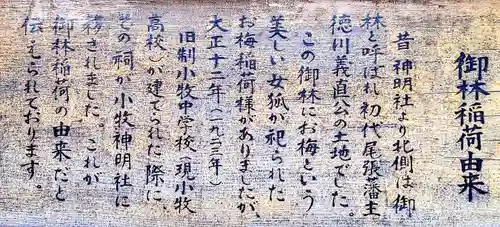 御林稲荷由来
昔神明社より北側は御
林と呼ばれ初代尾張藩主
徳川義直公の土地でした。
この御林にお梅という
美しい女狐が祀られた
お梅稲荷様がありましたが、
大正十二年(一九二三年)
旧制小牧中学校(現小牧
高校)が建てられた際に、
その祠が小牧神明社に
移されました。これが
御林稲荷の由来だと
伝えられております。